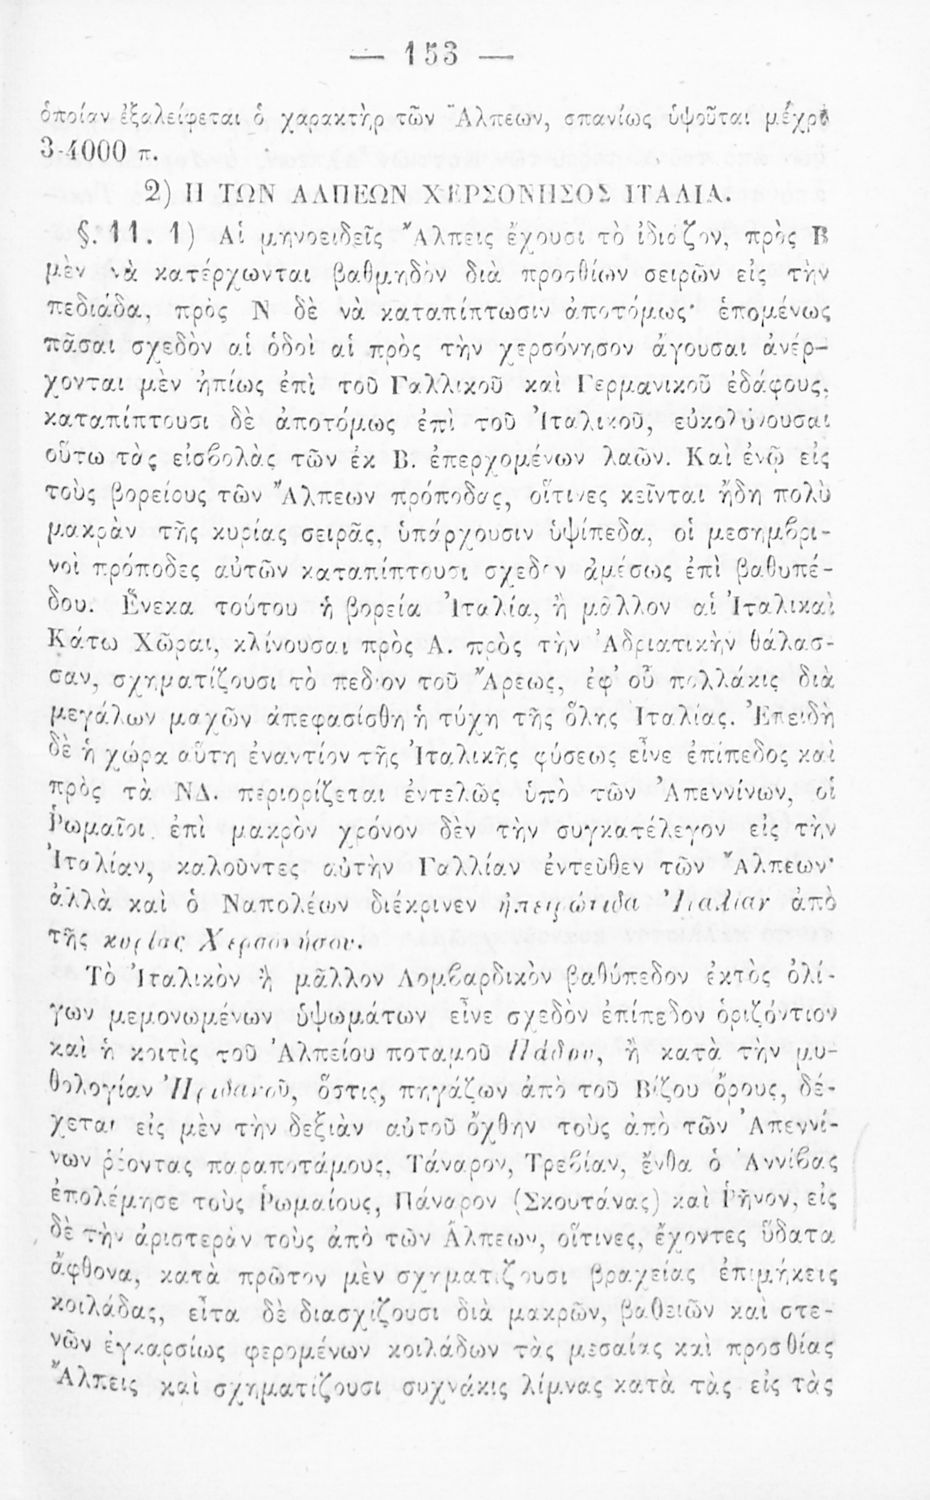 — 153 —
ὁποίαν ἐξαλείφεται ὁ χαρακτὴρ τῶν Ἄλπεων, σπανίως ὑψοῦται μέχρι
3-4000 π.
2) Η ΤΩΝ ΑΛΠΕΩΝ ΧΕΡΣΟΝΗΣΟΣ ΙΤΑΛΙΑ.
§. 11. 1) Αἱ μηνοειδεῖς Ἄλπεις ἔχουσι τὸ ἰδιάζον, πρὸς Β
μὲν νὰ κατέρχωνται βαθμηδὸν διὰ προσθίων σειρῶν εἰς τὴν
πεδιάδα, πρὸς Ν δὲ νὰ καταπίπτωσιν ἀποτόμως· ἑπομένως
πᾶσαι σχεδὸν αἱ ὁδοὶ αἱ πρὸς τὴν χερσόνησον ἄγουσαι ἀνέρ-
χονται μὲν ἠπίως ἐπὶ τοῦ Γαλλικοῦ καὶ Γερμανικοῦ ἐδάφους,
καταπίπτουσι δὲ ἀποτόμως ἐπὶ τοῦ Ἰταλικοῦ, εὐκολύνουσαι
οὕτω τὰς εἰσβολὰς τῶν ἐκ Β. ἐπερχομένων λαῶν. Καὶ ἐνῷ εἰς
τοὺς βορείους τῶν Ἄλπεων πρόποδας, οἵτινες κεῖνται ἤδη πολὺ
μακρὰν τῆς κυρίας σειρᾶς, ὑπάρχουσιν ὑψίπεδα, οἱ μεσημβρι-
νοὶ πρόποδες αὐτῶν καταπίπτουσι σχεδὸν ἀμέσως ἐπὶ βαθυπέ-
δου. Ἕνεκα τούτου ἡ βορεία Ἰταλία, ἢ μᾶλλον αἱ Ἰταλικαὶ
Κάτω Χῶραι, κλίνουσαι πρὸς Α. πρὸς τὴν Ἀδριατικὴν θάλασ-
σαν, σχηματίζουσι τὸ πεδίον τοῦ Ἄρεως, ἐφ' οὗ πολλάκις διὰ
μεγάλων μαχῶν ἀπεφασίσθη ἡ τύχη τῆς ὅλης Ἰταλίας. Ἐπειδὴ
δὲ ἡ χώρα αὕτη ἐναντίον τῆς Ἰταλικῆς φύσεως εἶνε ἐπίπεδος καὶ
πρὸς τὰ ΝΔ. περιορίζεται ἐντελῶς ὑπὸ τῶν Ἀπεννίνων, οἱ
Ῥωμαῖοι ἐπὶ μακρὸν χρόνον δὲν τὴν συγκατέλεγον εἰς τὴν
Ἰταλίαν, καλοῦντες αὐτὴν Γαλλίαν ἐντεῦθεν τῶν Ἄλπεων·
ἀλλὰ καὶ ὁ Ναπολέων διέκρινεν ἠπειρώτιδα Ἰταλίαν ἀπὸ
τῆς κυρίας Χερσονήσου.
Τὸ Ἰταλικὸν ἢ μᾶλλον Λομβαρδικὸν βαθύπεδον ἐκτὸς ὀλί-
γων μεμονωμένων ὑψωμάτων εἶνε σχεδὸν ἐπίπεδον ὁριζόντιον
καὶ ἡ κοιτὶς τοῦ Ἀλπείου ποταμοῦ Πάδου, ἢ κατὰ τὴν μυ-
θολογίαν Ἠριδανοῦ, ὅστις, πηγάζων ἀπὸ τοῦ Βίζου ὄρους, δέ-
χεται εἰς μὲν τὴν δεξιὰν αὐτοῦ ὄχθην τοὺς ἀπὸ τῶν Ἀπεννί-
νων ῥέοντας παραποτάμους, Τάναρον, Τρεβίαν, ἔνθα ὁ Ἀννίβας
ἐπολέμησε τοὺς Ῥωμαίους, Πάναρον (Σκουτάνας) καὶ Ῥῆνον, εἰς
δὲ τὴν ἀριστερὰν τοὺς ἀπὸ τῶν Ἄλπεων, οἵτινες, ἔχοντες ὕδατα
ἄφθονα, κατὰ πρῶτον μὲν σχηματίζουσι βραχείας ἐπιμήκεις
κοιλάδας, εἶτα δὲ διασχίζουσι διὰ μακρῶν, βαθειῶν καὶ στε-
νῶν ἐγκαρσίως φερομένων κοιλάδων τὰς μεσαίας καὶ προσθίας
Ἄλπεις καὶ σχηματίζουσι συχνάκις λίμνας κατὰ τὰς εἰς τὰς